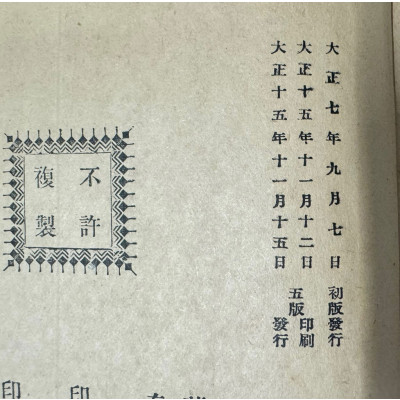 大正七年九月七日 初版發行
大正十五年十一月十二日 五版印刷
大正十五年十一月十五日 發行
不許
複製
印
印